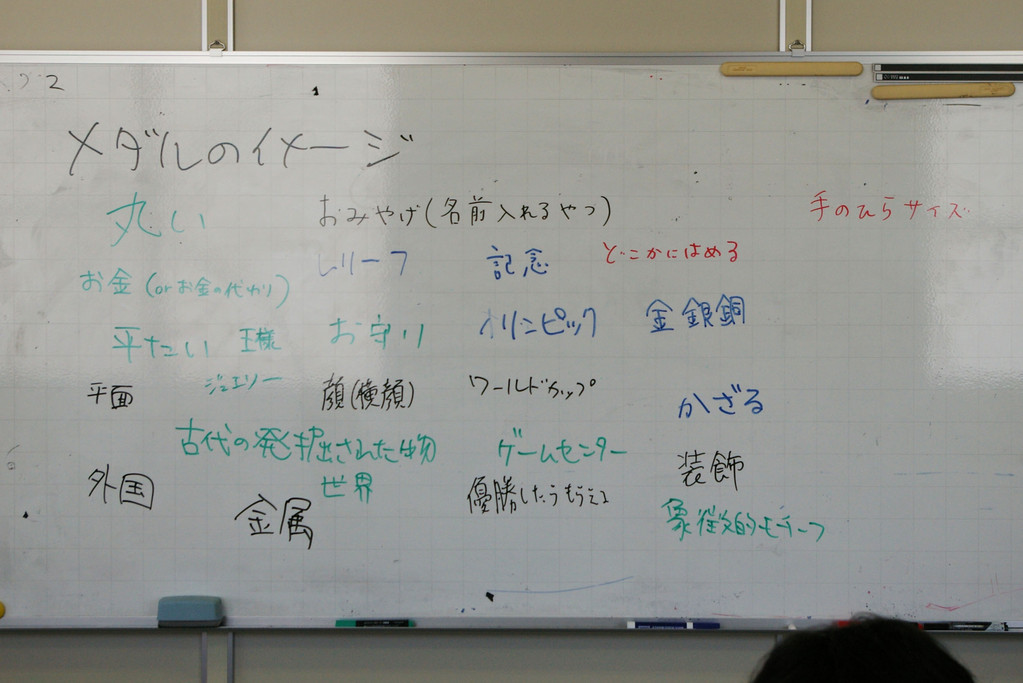 2
メダルのイメージ
丸い
おみやげ(名前入れるやつ)
手のひらサイズ
レリーフ
記念
どこかにはめる
お金(orお金の代わり)
平たい
王様
お守り
オリンピック
金銀銅
平面
ジュエリー
顔(横顔)
ワールドカップ
かざる
古代の発掘された物
ゲームセンター
装飾
外国
世界
優勝したらもらえる
金属
象徴的モチーフ